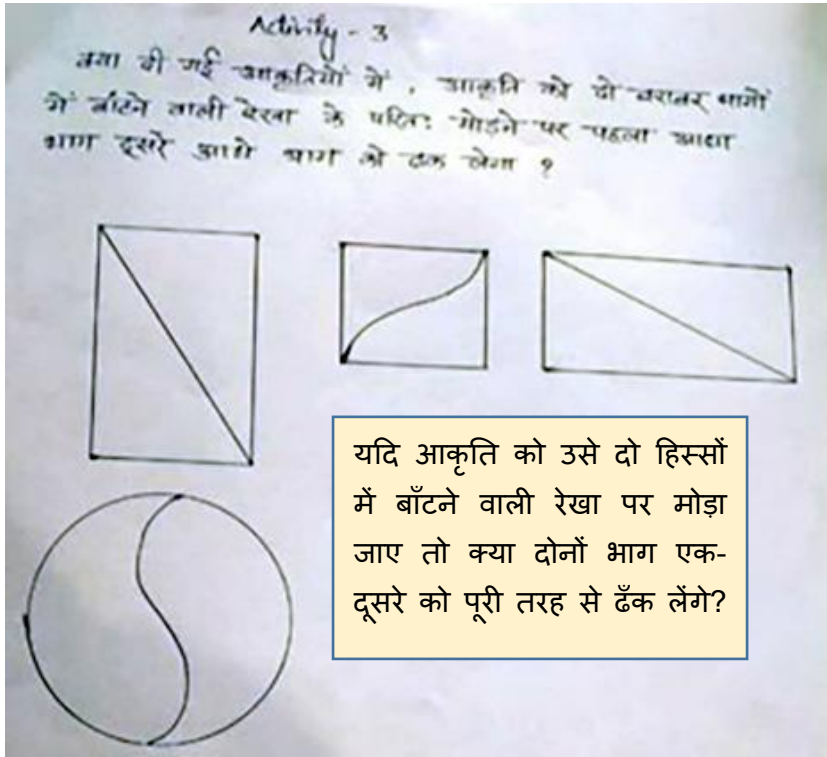 Activity - 3
क्या दी गई आकृतियों में, आकृति को दो बराबर भागों
में बाँटने वाली रेखा के परित: मोड़ने पर पहला आधा
भाग दूसरे आधे भाग को ढक लेगा ?
यदि आकृति को उसे दो हिस्सों
में बाँटने वाली रेखा पर मोड़ा
जाए तो क्या दोनों भाग एक-
दूसरे को पूरी तरह से ढँक लेंगे?